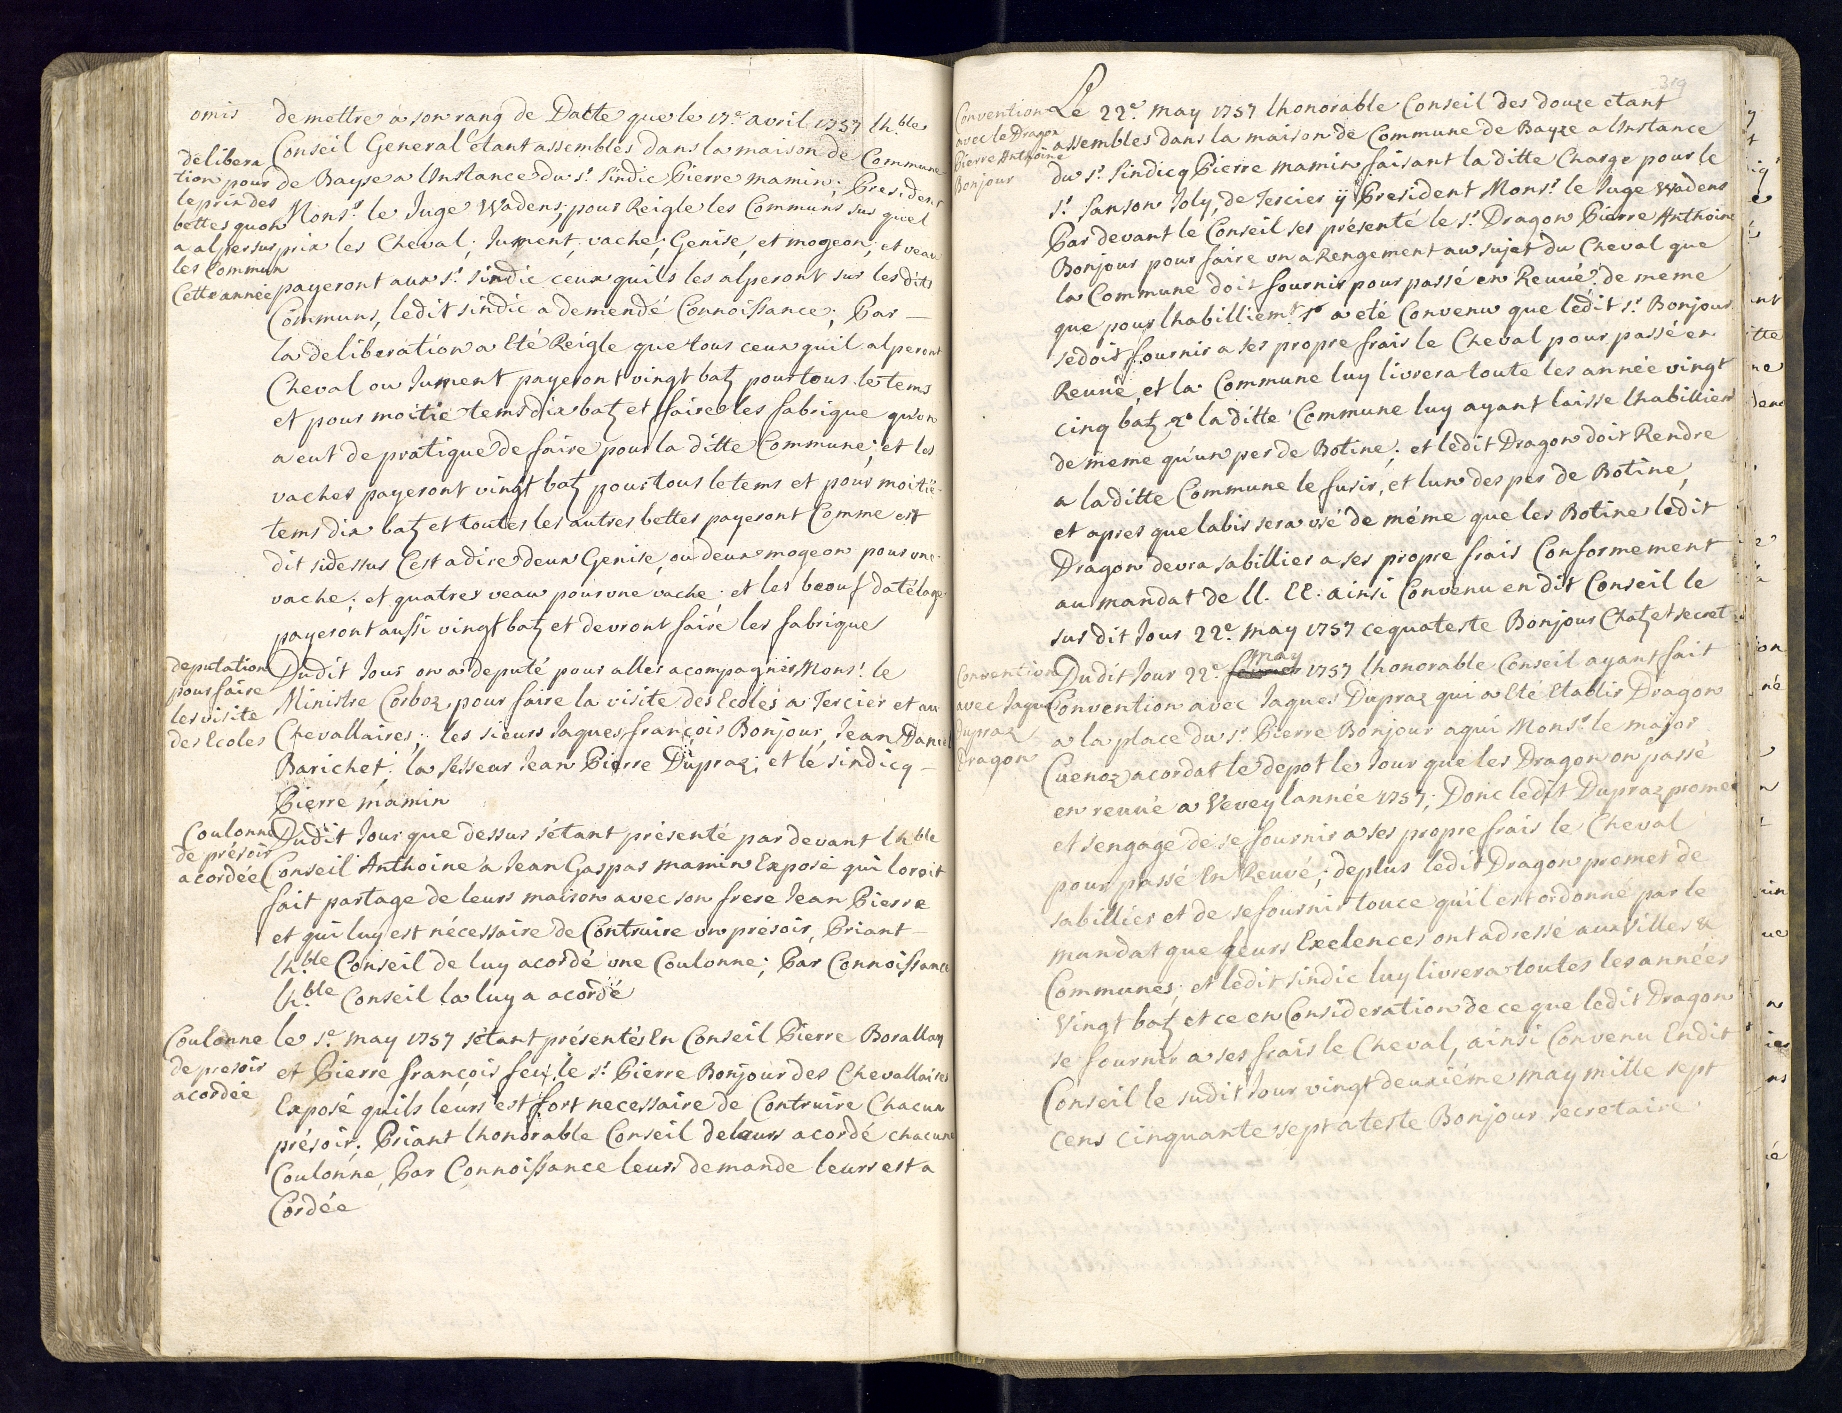 omis
delibera
tion pour
le prix des
bettes quon
a alper sur
les Commun
Cette année
de mettre a son rang de Datte que le 17e avril 1757 lh.ble
Conseil General etant assemblés dans la maison de Commune
de Bayse a lInstance du sr. Sindic Pierre mamin; President
Monsr. le Juge Wadens; pour Reigle les Communs sus quel
prix les Cheval; Jument, vache; Genise, et mogeon; et veau
payeront aux sr. sindic ceux quils les alperont sur les dits
Communs, ledit sindic a demendé Connoissance; Par —
la deliberation a Eté Reigle que tous ceux quil alperont
Cheval ou Jument payeront vingt batz pour tous le tems
et pour moitié tems dix batz et faire les fabrique qu'on
a eut de pratique de faire pour la ditte Commune; et les
vaches payeront vingt batz pour tous le tems et pour moitié
tems dix batz et toutes les autres bettes payeront Comme est
dit sidessus Cest a dire deux Genise, ou deux mogeon pour une
vache; et quatres veau pour une vache; et les beouf datélage
payeront aussi vingt batz et devront faire les fabrique
deputation
pour faire
les visite
des Ecoles
Dudit Jour on a deputé pour aller acompagner Monsr. le
Ministre Corboz, pour faire la visite des Ecoles a Tercier et au
Chevallaires; les sieurs Jaques françois Bonjour, Jean Daniel
Barichet, la sesseur Jean Pierre Dupraz; et le sindicq —
Pierre mamin
Coulonne
de présoir
acordée
Dudit Jour que dessus s'étant présenté par devant lh.ble
Conseil Anthoine a Jean Gaspas mamin Exposé qui loroit
fait partage de leurs maison avec son frere Jean Pierre
et qui luy est nécessaire de Contruire un présoir, Priant —
lh.ble Conseil de luy acordé une Coulonne; Par Connoissance
lh.ble Conseil la luy a acordé
Coulonne
de presoir
acordée
le 1e. may 1757 s'étant présentés En Conseil Pierre Borallay
et Pierre françois feu le sr. Pierre Bonjour des Chevallaires
Exposé quils leurs est fort necessaire de Contruire Chacun
présoir, Priant lhonorable Conseil de leurs acordé chacune
Coulonne, Par Connoissance leurs demande leurs est a
Cordée
319
Convention
avec le Dragon
Pierre Anthoine
Bonjour
Le 22e. may 1757 lhonorable Conseil des douze etant
assembles dans la maison de Commune de Bayse a lInstance
du sr. Sindicq Pierre mamin faisant la ditte Charge pour le
sr. Sanson Joly, de Tercier ÿ President Monsr. le Juge Wadens
Par devant le Conseil ses présenté le sr. Dragon Pierre Anthoine
Bonjour pour faire un a Rengement au sujet du Cheval que
la Commune doit fournir pour passé en Reuué de meme
que pour lhabilliemt. a eté Convenu que lédit sr. Bonjour
sedoit fournir a ses propre frais le Cheval pour passé en
Reuué, et la Commune luy livrera toute les année vingt
cinq batz la ditte Commune luy ayant laisse lhabilliemt
de meme qu'un per de Botine; et lédit Dragon doit Rendre
a la ditte Commune le fusir, et lun des pes de Botine,
et apres que labis sera usé de méme que les Botine ledit
Dragon devra sabillier a ses propre frais Conformement
au mandat de LL. EE. ainsi Convenu en dit Conseil le
sus dit Jour 22e. may 1757 ce quateste Bonjour Chatz et secret
Convention
avec Jaque
Dupraz
Dragon
Dudit Jour 22e. may 1757 lhonorable Conseil ayant fait
Convention avec Jaques Dupraz qui a Eté Etablis Dragon
a la place du sr. Pierre Bonjour a qui Monsr. le major
Cuenoz acordat le depot le Jour que les Dragon on passé
en reuué a Vevey lannée 1757; Donc ledit Dupraz promet
et sengage de se fournir a ses propre frais le Cheval
pour passé En Reuué; deplus ledit Dragon promet de
sabillier et de se fournir tou ce qu'il est ordonné par le
mandat que leurs Exelences ont adressé aux Villes &
Communes; et ledit sindic luy livrera toutes les années
Vingt batz et ce en Consideration de ce que ledit Dragon
se fournir a ses frais le Cheval, ainsi Convenu Endit
Conseil le sudit Jour vingt deuxiéme may mille sept
cens cinquante sept ateste Bonjour secretaire